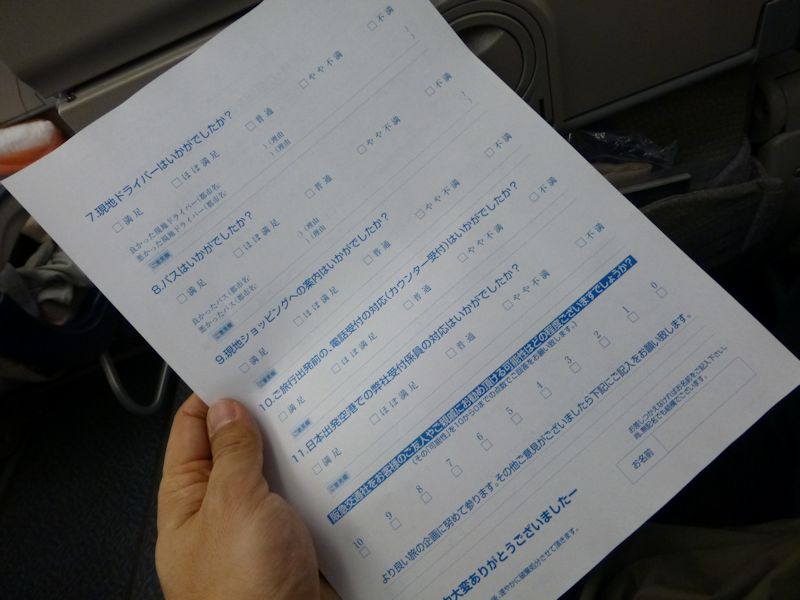 7.現地ドライバーはいかがでしたか?
□満足 □ほぼ満足 □普通 □やや不満 □不満
良かった現地ドライバー(都市名: )(理由 )
悪かった現地ドライバー(都市名: )(理由 )
ご意見欄
8.バスはいかがでしたか?
□満足 □ほぼ満足 □普通 □やや不満 □不満
良かったバス(都市名: )(理由 )
悪かったバス(都市名: )(理由 )
ご意見欄
9.現地ショッピングへの案内はいかがでしたか?
□満足 □ほぼ満足 □普通 □やや不満 □不満
ご意見欄
10.ご旅行出発前の、電話受付の対応(カウンター受付)はいかがでしたか?
□満足 □ほぼ満足 □普通 □やや不満 □不満
ご意見欄
11.日本出発空港での弊社受付係員の対応はいかがでしたか?
□満足 □ほぼ満足 □普通 □やや不満 □不満
ご意見欄
阪急交通社をお客様のご友人やご親戚にお勧め頂ける可能性はどの程度ございますでしょうか?
(その「可能性」を10から0までの点数でご回答をお願い致します。)
10 9 8 7 6 5 4 3 2 1 0
□ □ □ □ □ □ □ □ □ □ □
より良い旅の企画に努めて参ります。その他ご意見がございましたら下記にご記入をお願い致します。
お差しつかえなければお名前をご記入下さい。
尚、無記名でも結構でございます。
お名前
大変ありがとうございましたー
速やかに破棄処分させて頂きます。